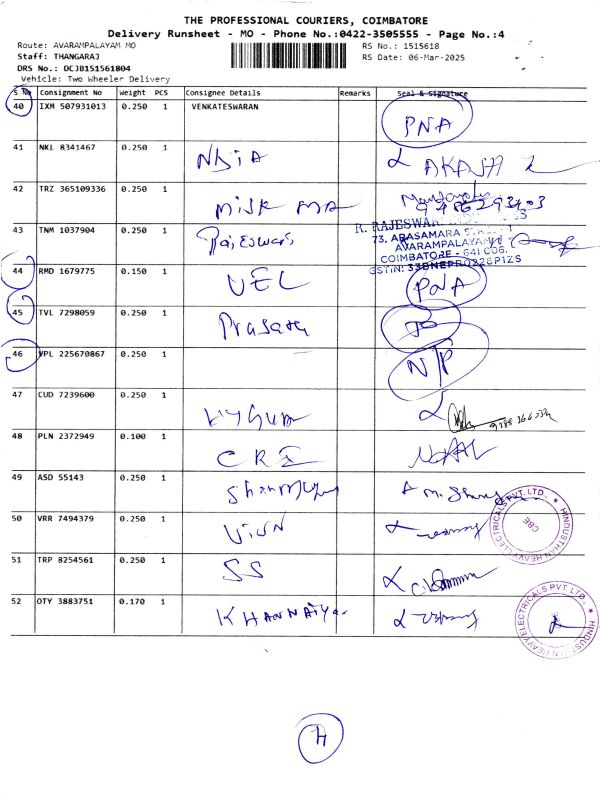 THE PROFESSIONAL COURIERS, COIMBATORE
Delivery Runsheet - MO - Phone No.:0422-3505555 - Page No.:4
Route: AVARAMPALAYAM MO RS No.: 1515618
Staff: THANGARAJ RS Date: 06-Mar-2025
DRS No.: DCJB151561804
Vehicle: Two Wheeler Delivery
S No Consignment No Weight PCS Consignee Details Remarks Seal & Signature
40 IXM 507931013 0.250 1 VENKATESWARAN PNA
41 NKL 8341467 0.250 1 AKASH
42 TRZ 365109336 0.250 1
43 TNM 1037904 0.250 1 Rajeswari
R. RAJESWARI
73, ARASAMARA
AVARAMPALAYAM
COIMBATORE - 641 006.
GSTIN: 33BNEPR0226P1ZS
44 RMD 1679775 0.150 1 VEL PNA
45 TVL 7298059 0.250 1
46 VPL 225670867 0.250 1 N/P
47 CUD 7239600 0.250 1
48 PLN 2372949 0.100 1 CRI
49 ASD 55143 0.250 1
50 VRR 7494379 0.250 1
HINDUSTHAN HEAVY ELECTRICALS PVT. LTD. ★
CBE
51 TRP 8254561 0.250 1 SS
52 OTY 3883751 0.170 1 KHANNAIYa
HINDUSTHAN HEAVY ELECTRICALS PVT. LTD. ★